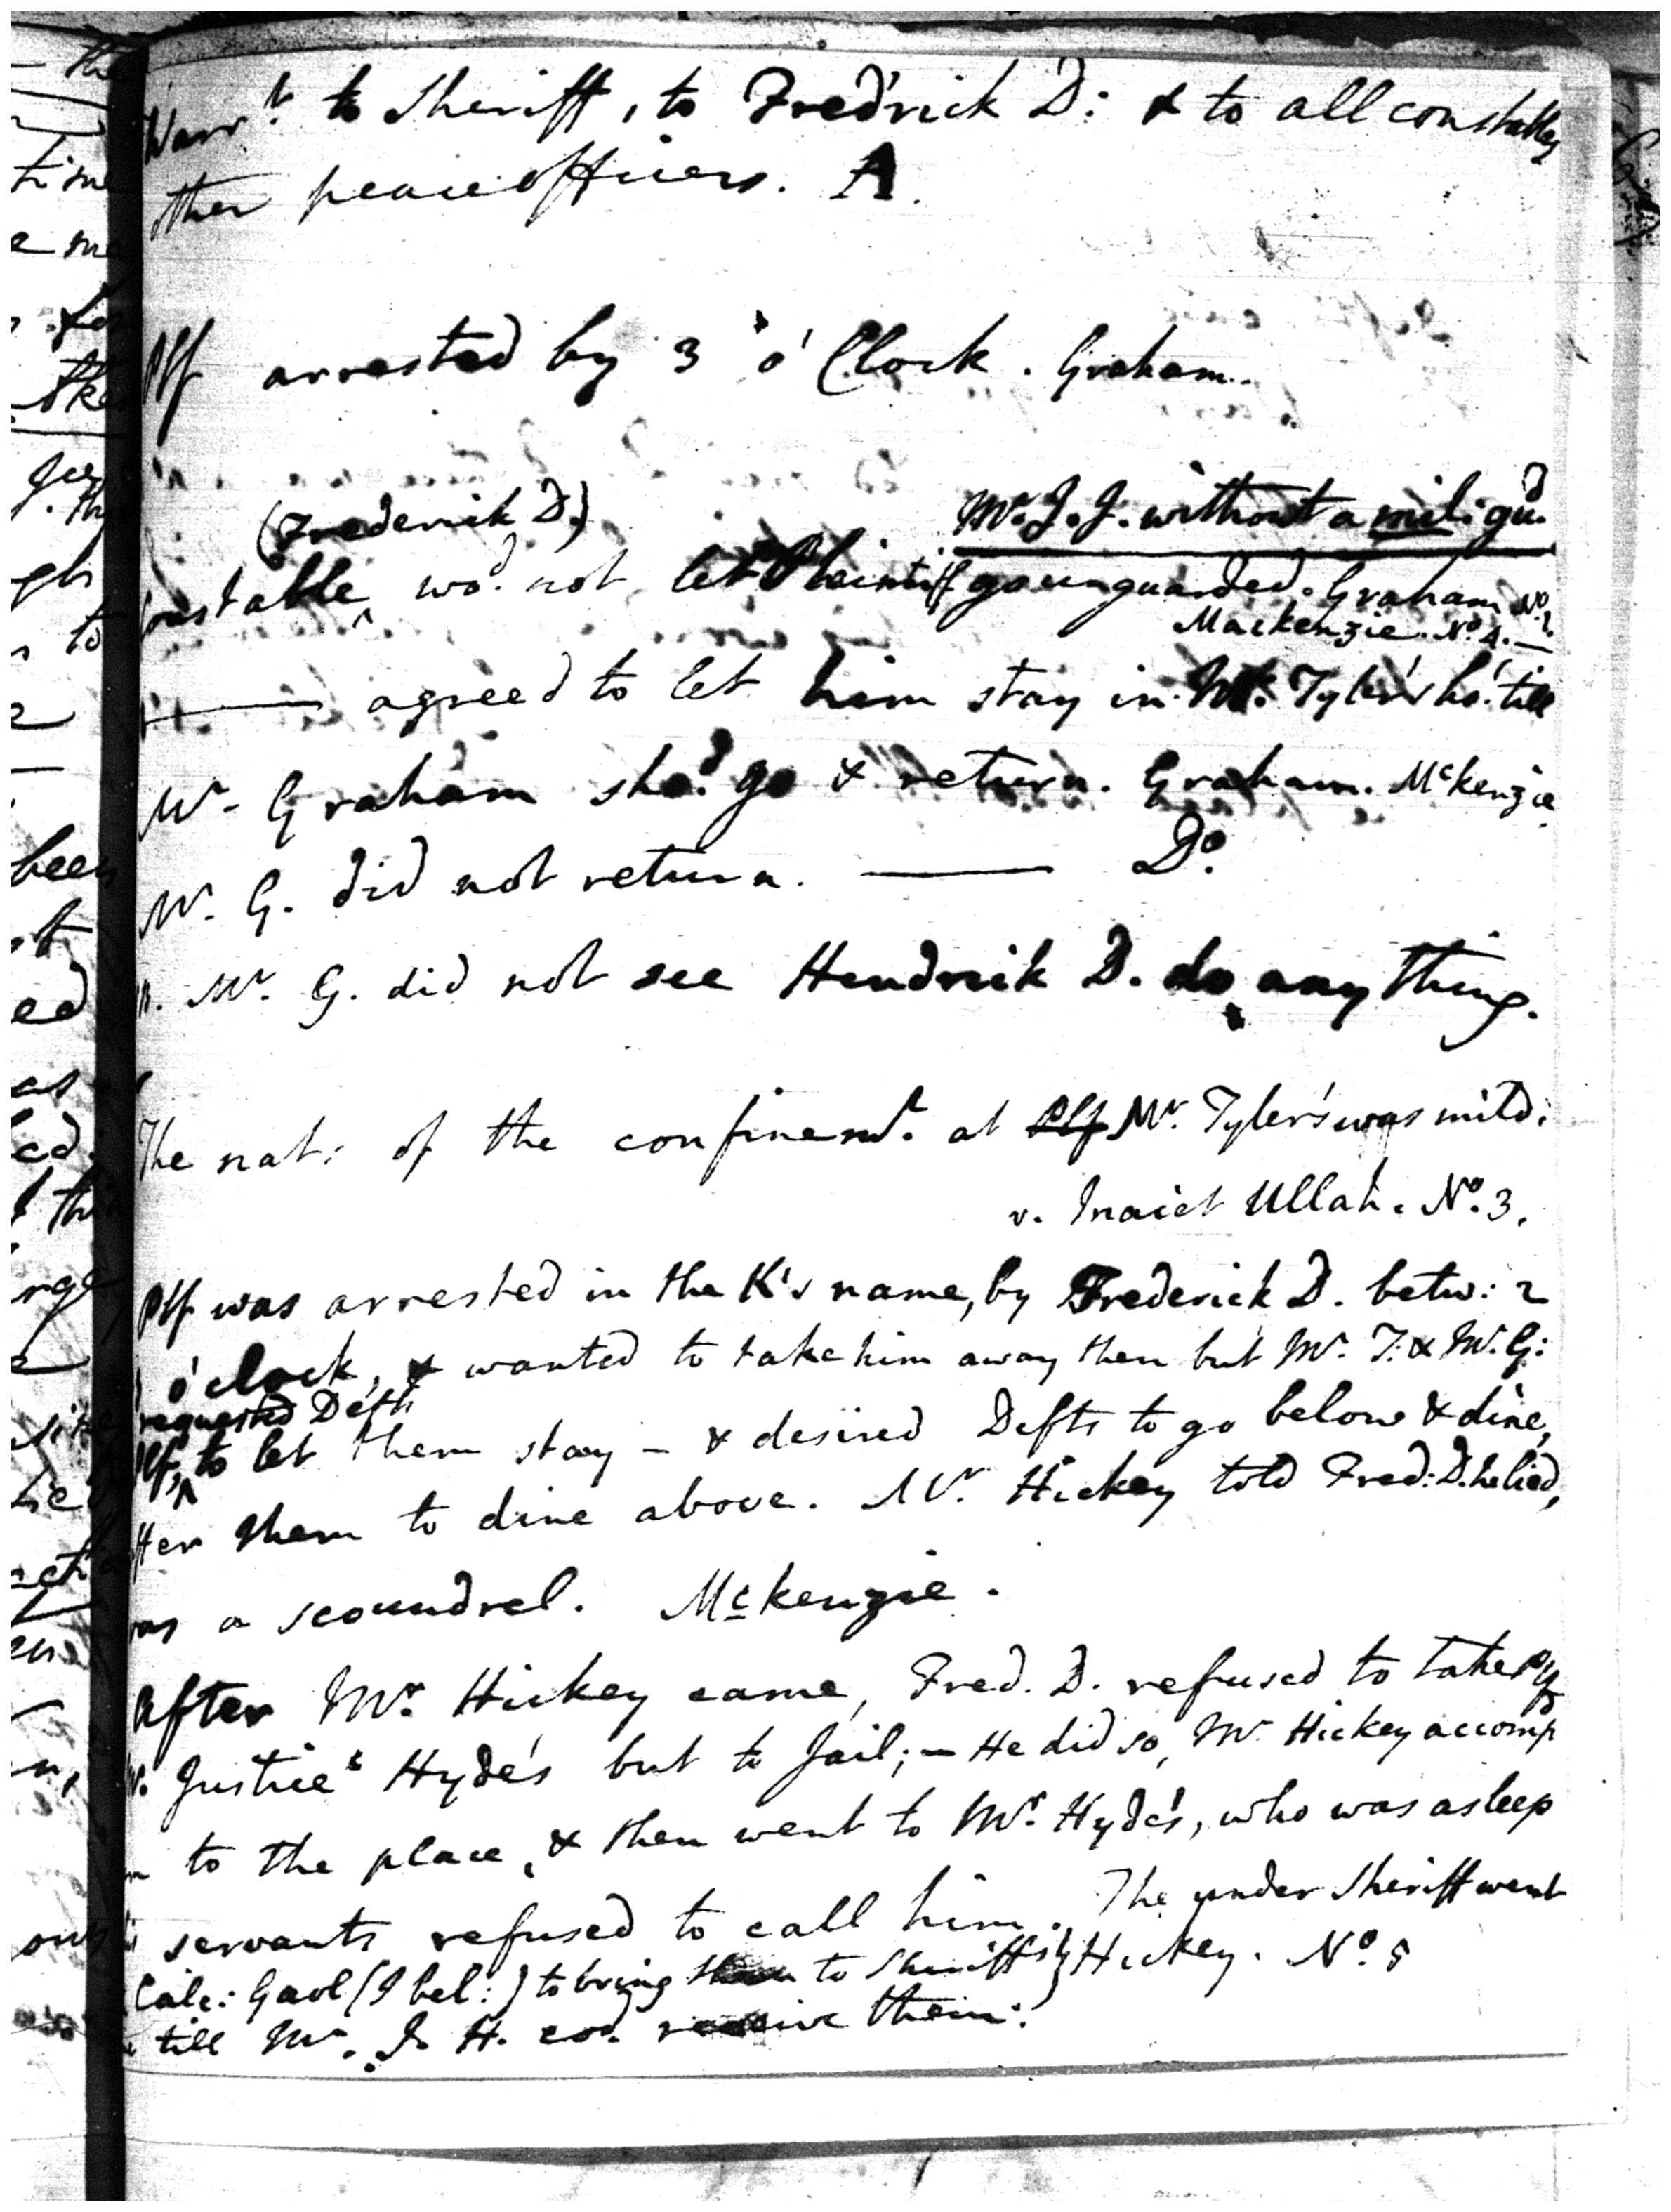 Warrt. to Sheriff, to Fredrick D: & to all constables
other peace officers. A.
Plf arrested by 3 o'Clock. Graham.
(Frederick D.) Mr. J. J. without a mil: gd.
Constable ^ wod. not let Plaintiff go unguarded. Graham No. 2.
Mackenzie. No. 4. —
—— agreed to let him stay in Mr. Tyler's ho: till
Mr. Graham shod. go & return. Graham. McKenzie
Mr. G. did not return. —— Do.
Mr. G. did not see Hendrick D. do any thing.
The nat: of the confinemt. at Mr. Tyler's was mild:
v. Inaiet Ullah. No. 3.
Plf was arrested in the K's name, by Frederick D. betw: 2
o'clock, & wanted to take him away then but Mr. T. & Mr. G:
requested Defts
Plf, ^ to let them stay – & desired Defts to go below & dine,
after them to dine above. Mr. Hickey told Fred: D. he lied,
was a scoundrel. McKenzie.
After Mr. Hickey came, Fred. D. refused to take Plf
Justice Hyde's but to Jail; – He did so, Mr. Hickey accomp
to the place, & then went to Mr. Hyde's, who was asleep
servants refused to call him. The under Sheriff went
Calc: Gaol (I bel:) to bring them to Sheriff's } Hickey. No. 5
till Mr. J. H. cod. receive them: